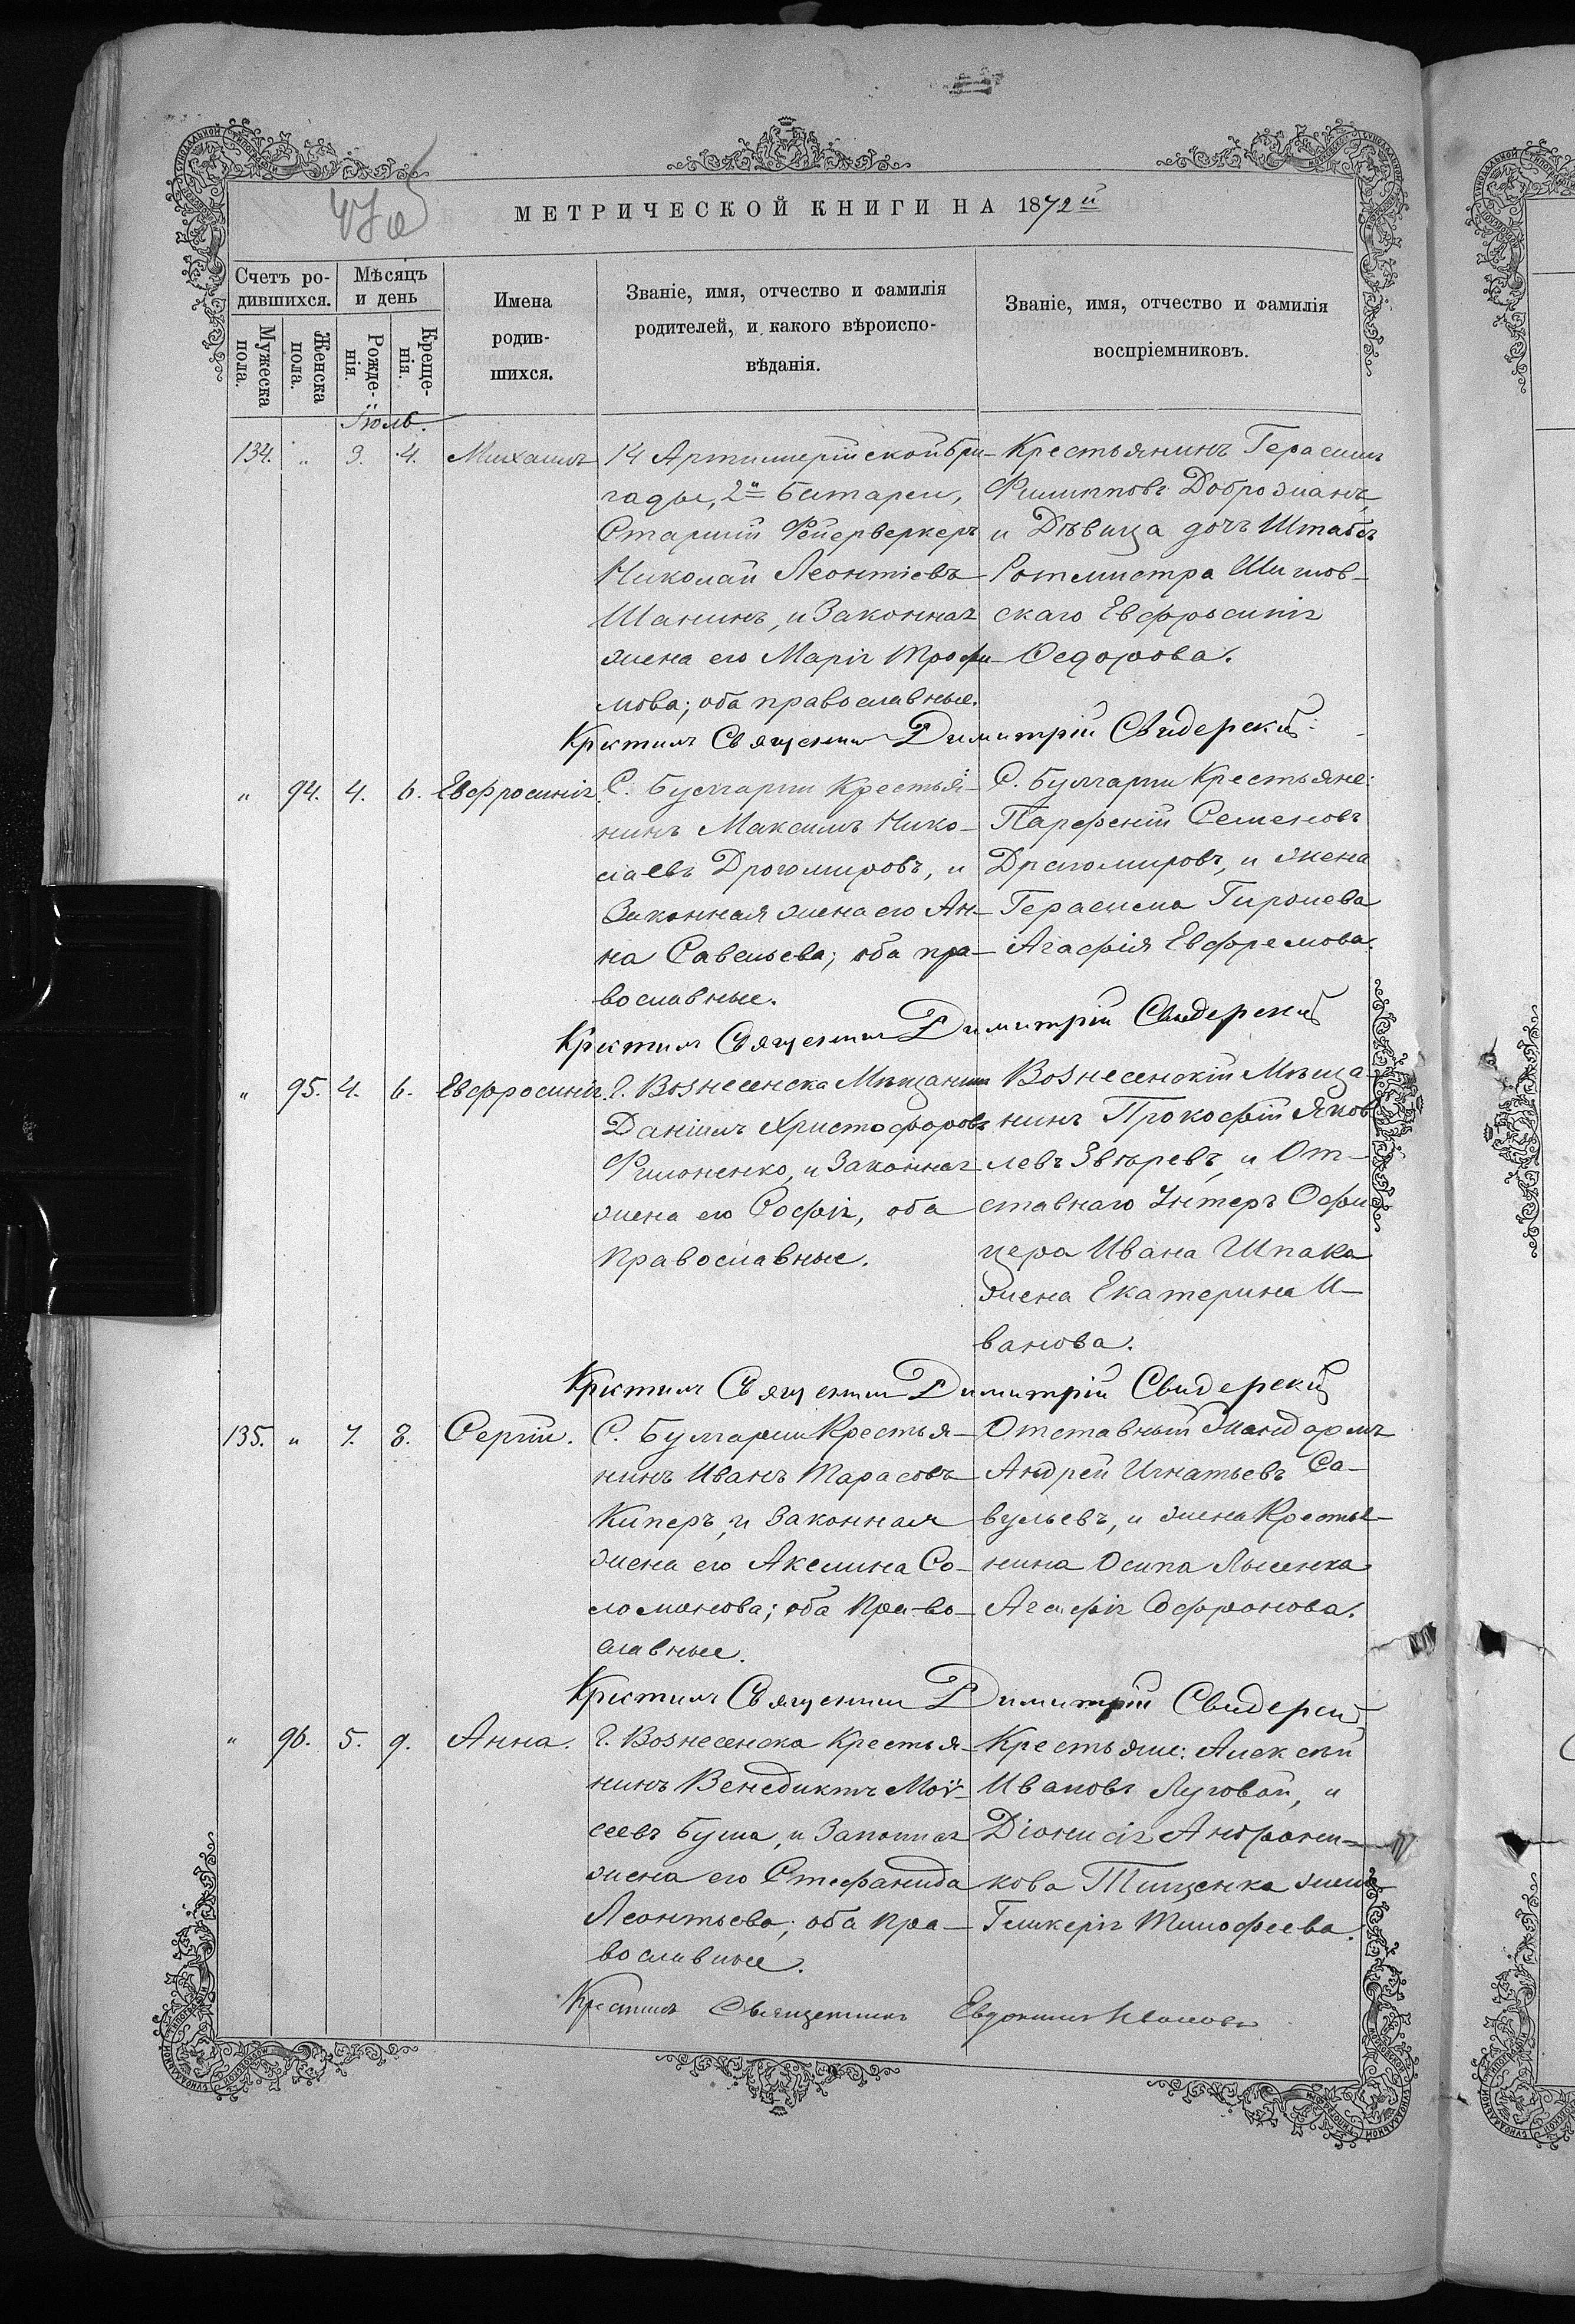 МЕТРИЧЕСКОЙ КНИГИ НА 1872й
Счетъ ро-
дившихся.
Мѣсяцъ
и день
Мужеска
пола.
Женска
пола.
Рожде-
нія.
Креще-
нія.
Имена
родив-
шихся.
Званіе, имя, отчество и фамилія
родителей, и какого вѣроиспо-
вѣданія.
Званіе, имя, отчество и фамилія
воспріемниковъ.
Іюль.
134. " 3. 4. Михаилъ
14 Артиллерійской бри-
гады, 2й Батареи,
Старшій Фейерверкеръ
Николай Леонтіевъ
Шанинъ, и Законная
жена его Марія Трофи-
мова; оба православные.
Крестьянинъ Герасимъ
Филипповъ Доброжанъ,
и Дѣвица дочь Штабсъ
Ротмистра Шилов-
скаго Евфросинія
Ѳедорова.
Крстилъ Священникъ Димитрій Свидерскій
" 94. 4. 6. Евфросинія.
С. Булгарки Крестья-
нинъ Максимъ Нико-
лаевъ Дрогомировъ, и
Законная жена его Ан-
на Савельева; оба пра-
вославные.
С. Булгарки Крестьяне:
Парфеній Семеновъ
Драгомировъ, и жена
Герасима
Агафія Евфремова.
Крстилъ Священникъ Димитрій Свидерскій
" 95. 4. 6. Евфросинія.
Г. Вознесенска Мѣщанинъ
Даніилъ Христофоровъ
Филоненко, и Законная
жена его Софія, оба
православные.
Вознесенскій Мѣща-
нинъ Прокофій Яков-
левъ Звѣревъ, и От-
ставнаго Унтеръ Офи
цера Ивана Шпака
жена Екатерина И-
ванова.
Крстилъ Священникъ Димитрій Свидерскій
135. " 7. 8. Сергій.
С. Булгарки Крестья-
нинъ Иванъ Тарасовъ
Киперъ, и Законная
жена его Акелина Со-
ломонова; оба Право-
славные.
Отставный Жандармъ
Андрей Игнатьевъ Са-
вульевъ, и жена Крестья-
нина Осипа Лысенка
Агафія Софронова.
Крстилъ Священникъ Димитрій Свидерскій
" 96. 5. 9. Анна.
Г. Вознесенска Крестья-
нинъ Венедиктъ Моѵ-
сеевъ Буша, и Законная
жена его Стефанида
Леонтьева; оба Пра-
вославные.
Крестьяне: Алексѣй
Ивановъ Луговой, и
Діонисія Андрони-
кова Тищенка жена
Гликерія Тимофеева.
Крестилъ Священникъ Евдокимъ Ивановъ